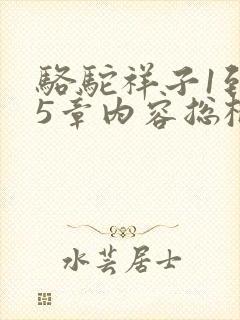 骆驼祥子1到
5章内容总
水芸居士